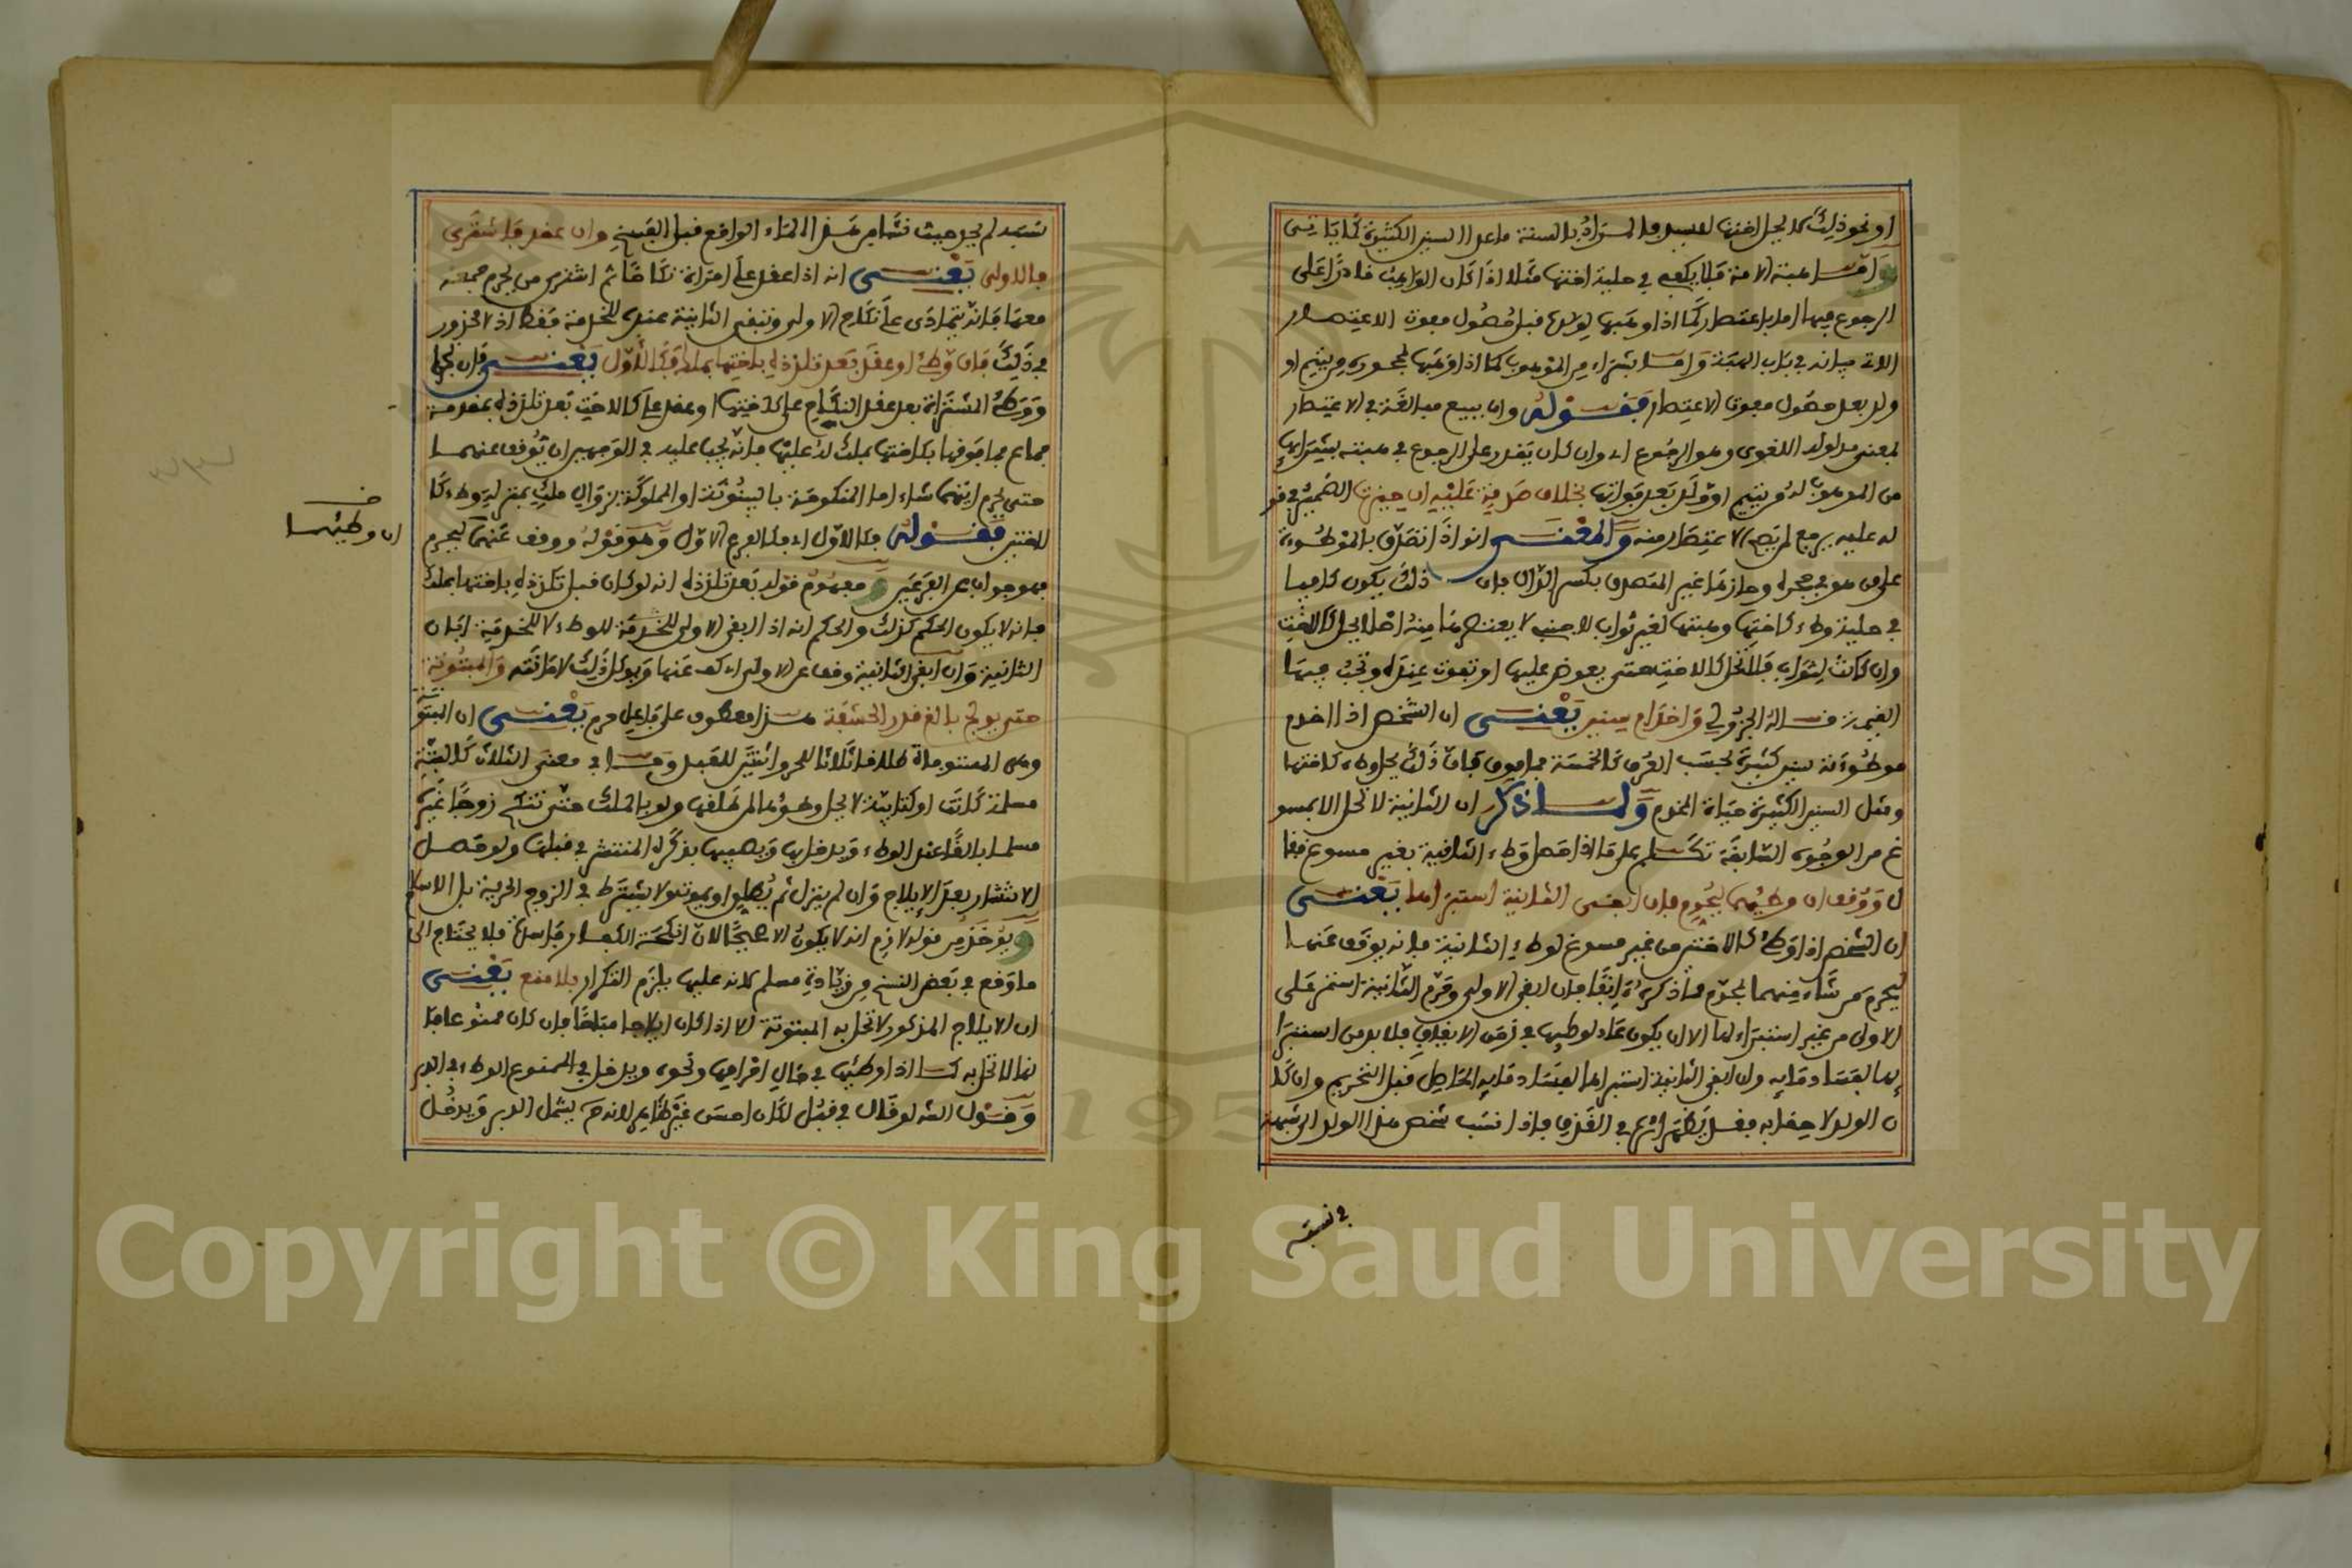 او نحو ذلك لا يحل اختها لسيدها المراد بالسنة ما عدا السنين الكثيرة كما ياتي
واما هبة الامة فلا يكفي في حلية اختها مثلا اذا كان الواهب قادرا على
الرجوع فيها اما بلا اعتصار كما اذا وهبها لولده قبل حصول مفوت الاعتصار
الاتي بيانه في باب الهبة واما بشراء من الموهوب كما اذا وهبها لمحجوره من يتيم او
ولد بعد حصول مفوت الاعتصار فقوله وان ببيع مبالغة في الاعتصار
بمعنى مدلوله اللغوي وهو الرجوع اي وان كان يقدر على الرجوع في هبته بشرائها
من الموهوب له من يتيم او ولد بعد فواتها بخلاف صدقة عليه ان حيزت الضمير في قو
له عليه يرجع لمن يصح الاعتصار منه والمعنى انه اذا تصدق بالموطوءة
على من هو في حجره وحازها غير المتصدق بكسر الدال فان ذلك يكون كافيا
في حلية وطء كاختها وهبتها لغير ثواب لاجنبي لا يعتصرها منه اصلا يحل كالاخت
وان كانت لثواب فلا تحل كالاخت حتى يعوض عليها او تفوت عنده وتجب فيها
القيمة قاله الجزولي واخدام سنين يعني ان الشخص اذا اخدم
موطوءته سنين كثيرة بحسب العرف كالخمسة فما فوق فان ذلك يحل وطء كاختها
ومثل السنين الكثيرة حياة المخدم ولما ذكر ان الثانية لا تحل الا بمسو
غ من الوجوه السابقة تكلم على ما اذا حصل وطء الثانية بغير مسوغ فقا
ل ووقف ان وطئهما ليحرم فان ابقى الثانية استبراها يعني
ان الشخص اذا وطئ كالاختين من غير مسوغ لوطء الثانية فانه يوقف عنهما
ليحرم من شاء منهما بمحرم مما ذكره انفا فان ابقى الاولى وحرم الثانية استمر على
الاولى من غير استبراء لها الا ان يكون عاد لوطئها في زمن الايقاف فلا بد من استبرا
ئها لفساد مائه وان ابقى الثانية استبراها لفساد مائه الحاصل قبل التحريم وان كا
ن الولد لاحقا به فقد يظهر اثره في القذف فاذا نسب شخص هذا الولد الى شبهة
في نسبه
شبهة لم يحد حيث نشا من هذا الماء الواقع قبل الفسخ وان عقد فاشترى
فالاولى يعني انه اذا عقد على امراة نكاحا ثم اشترى من يحرم جمعه
معها فانه يتمادى على نكاح الاولى وتبقى الثانية عنده للخدمة فقط اذ لا محذور
في ذلك فان وطئ او عقد بعد تلذذه باختها بملك فكالاول يعني فان كما
ووطئ المشتراة بعد عقد النكاح على اختها او عقد على كالاخت بعد تلذذه بمقدمة
جماع فما فوقها بكاختها بملك له عليها فانه يجب عليه في الوجهين ان يوقف عنهما
حتى يحرم ايتهما شاء اما المنكوحة بالبينونة او المملوكة بزوال ملك بمنزلة وطء كا
لاختين فقوله فكالاول اي فكالفرع الاول وهو قوله ووقف عنهما ليحرم
فهو جواب عن الفرعين ومفهوم قوله بعد تلذذه انه لو كان قبل تلذذه باختها بملك
فانه لا يكون الحكم كذلك والحكم انه اذا ابقى الاولى للخدمة للوطء لا للخدمة ابان
الثانية وان ابقى الثانية وقف عن الاولى اي كف عنها ويوكل ذلك لامانته والمبتوتة
حتى يولج بالغ قدر الحشفة هذا معطوف على فاعل حرم يعني ان المبتوتة
وهي المبتوتة طلاقا ثلاثا للحر واثنتين للعبد وما في معنى الثلاث كالبتة
مسلمة كانت او كتابية لا يحل وطؤها لمطلقها ولو بالملك حتى تنكح زوجا غيره
مسلما بالغا عند الوطء ويدخل بها ويصيبها بذكره المنتشر في قبلها ولو حصل
الانتشار بعد الايلاج وان لم ينزل ثم يطلق او يموت ولا يشترط في الزوج الحرية بل الاسلام
ويؤخذ من قوله لازم انه لا يكون الا صحيحا لان انكحة الكفار فاسدة فلا يحتاج الى
ما وقع في بعض النسخ من زيادة مسلم لانه عليها يلزم التكرار بلا منع يعني
ان الايلاج المذكور لا تحل به المبتوتة الا اذا كان ايلاجا مباحا فان كان ممنوعا فا
نها لا تحل به كما اذا وطئها في حال احرامها ونحوه ويدخل في الممنوع الوطء في الدبر
وقول الشه لو قال في قبل لكان احسن غير ظاهر لانه ح يشمل الدبر ويدخل
خـ
ان وطئهما